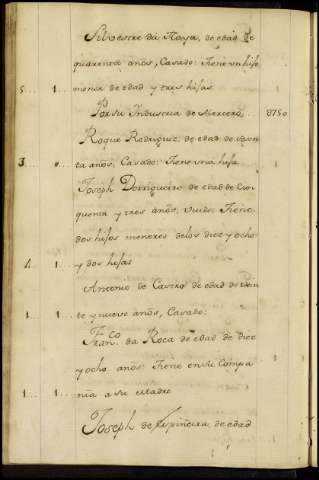 Silvestre da Haya, de edad de
quarenta años, Casado: tiene un hijo
5.. 1.. menor de edad y tres hijas
Por su Industria de Mercero.. 8750
Roque Rodriguez de edad de
3.. ".. ta años, Casado: Tiene una hija
Joseph Dorrigueiro de edad de Cin
quenta y tres años, viudo: Tiene
dos hijos menores de los diez y ocho
4.. 1.. y dos hijas
Antonio de Castro de edad de vein
1.. te y nueve años, Casado:
Fran.co da Roca de edad de diez
y ocho años tiene en su Compa
1.. 1.. ñia a su Madre
Joseph de Espiñeira de edad